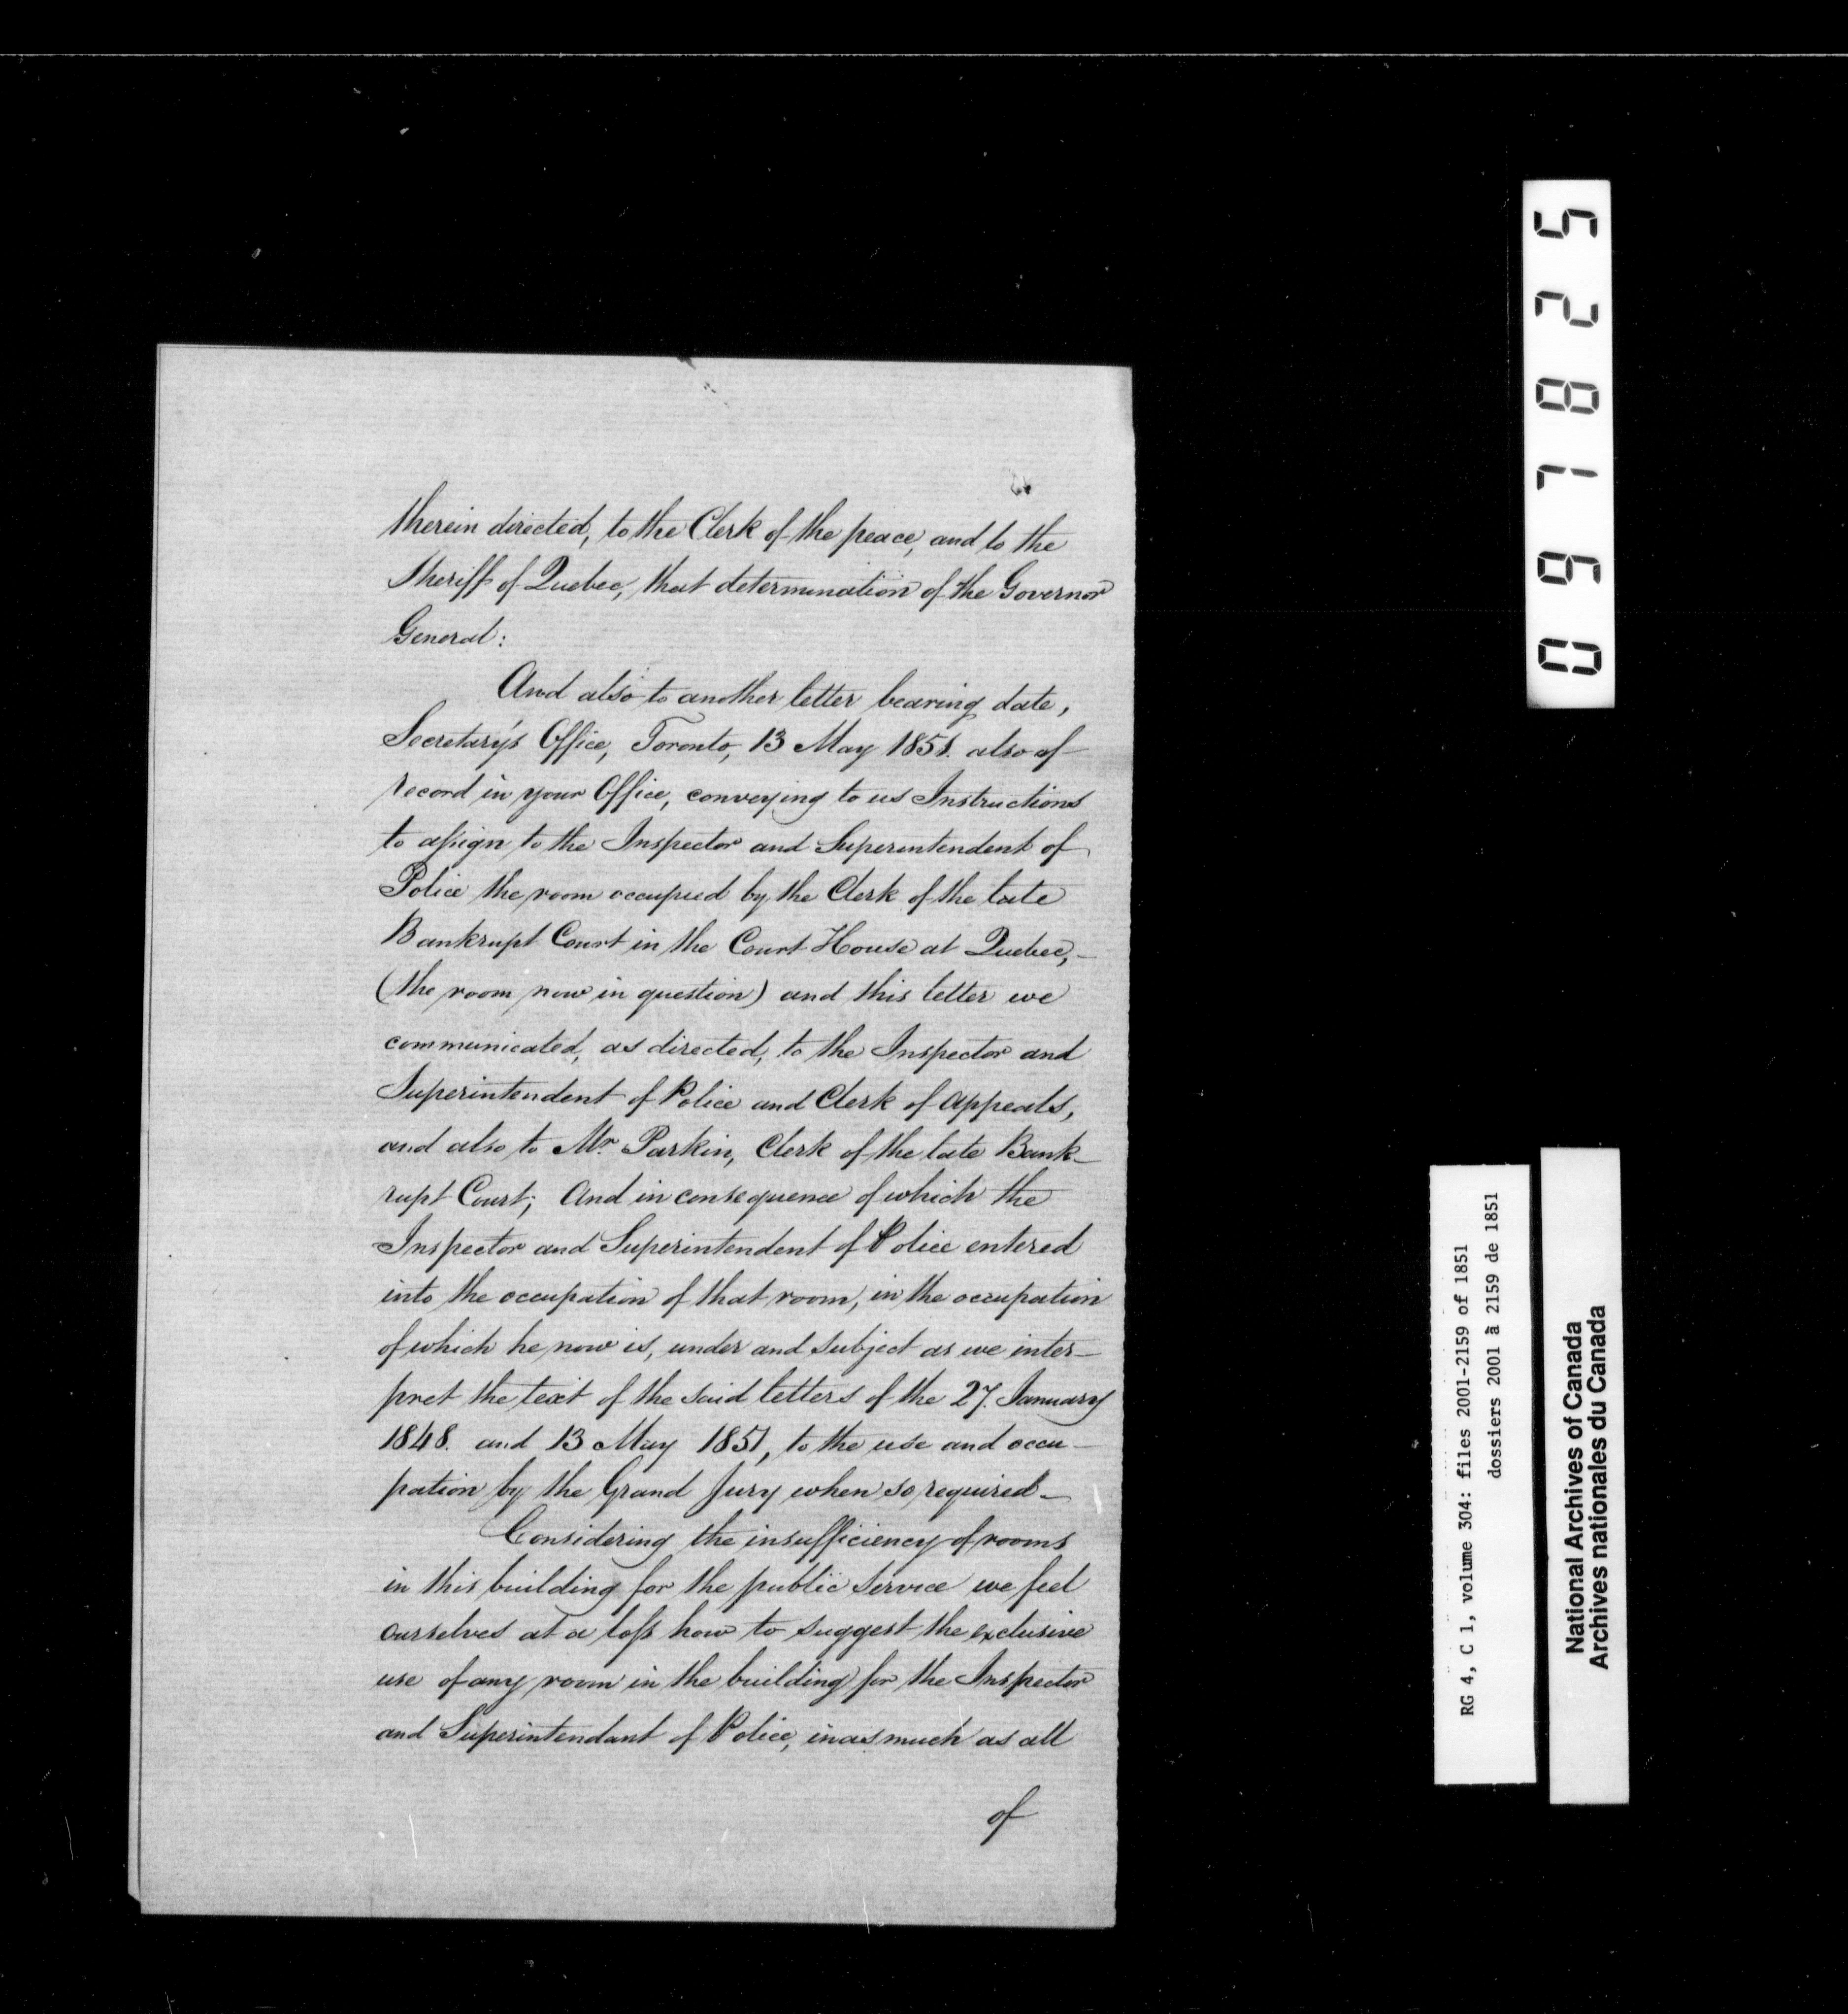 therein directed, to the Clerk of the peace, and to the
Sheriff of Quebec, that determination of the Governor
General:
And also to another letter bearing date,
Secretary's Office, Toronto, 13 May 1851. also of
record in your Office, conveying to us Instructions
to assign to the Inspector and Superintendent of
Police the room occupied by the Clerk of the late
Bankrupt Court in the Court House at Quebec,-
(the room now in question) and this letter we
communicated, as directed, to the Inspector and
Superintendent of Police and Clerk of Appeals,
and also to Mr. Parkin, Clerk of the late Bank-
rupt Court; And in consequence of which the
Inspector and Superintendent of Police entered
into the occupation of that room, in the occupation
of which he now is, under and subject as we inter-
pret the text of the said letters of the 27. January
1848. and 13 May 1851, to the use and occu-
pation by the Grand Jury when so required-
Considering the insufficiency of rooms
in this building for the public service we feel
ourselves at a loss how to suggest the exclusive
use of any room in the building for the Inspector
and Superintendant of Police, in as much as all
of
097825
RG 4, C 1, volume 304: files 2001-2159 of 1851
dossiers 2001 à 2159 de 1851
National Archives of Canada
Archives nationales du Canada